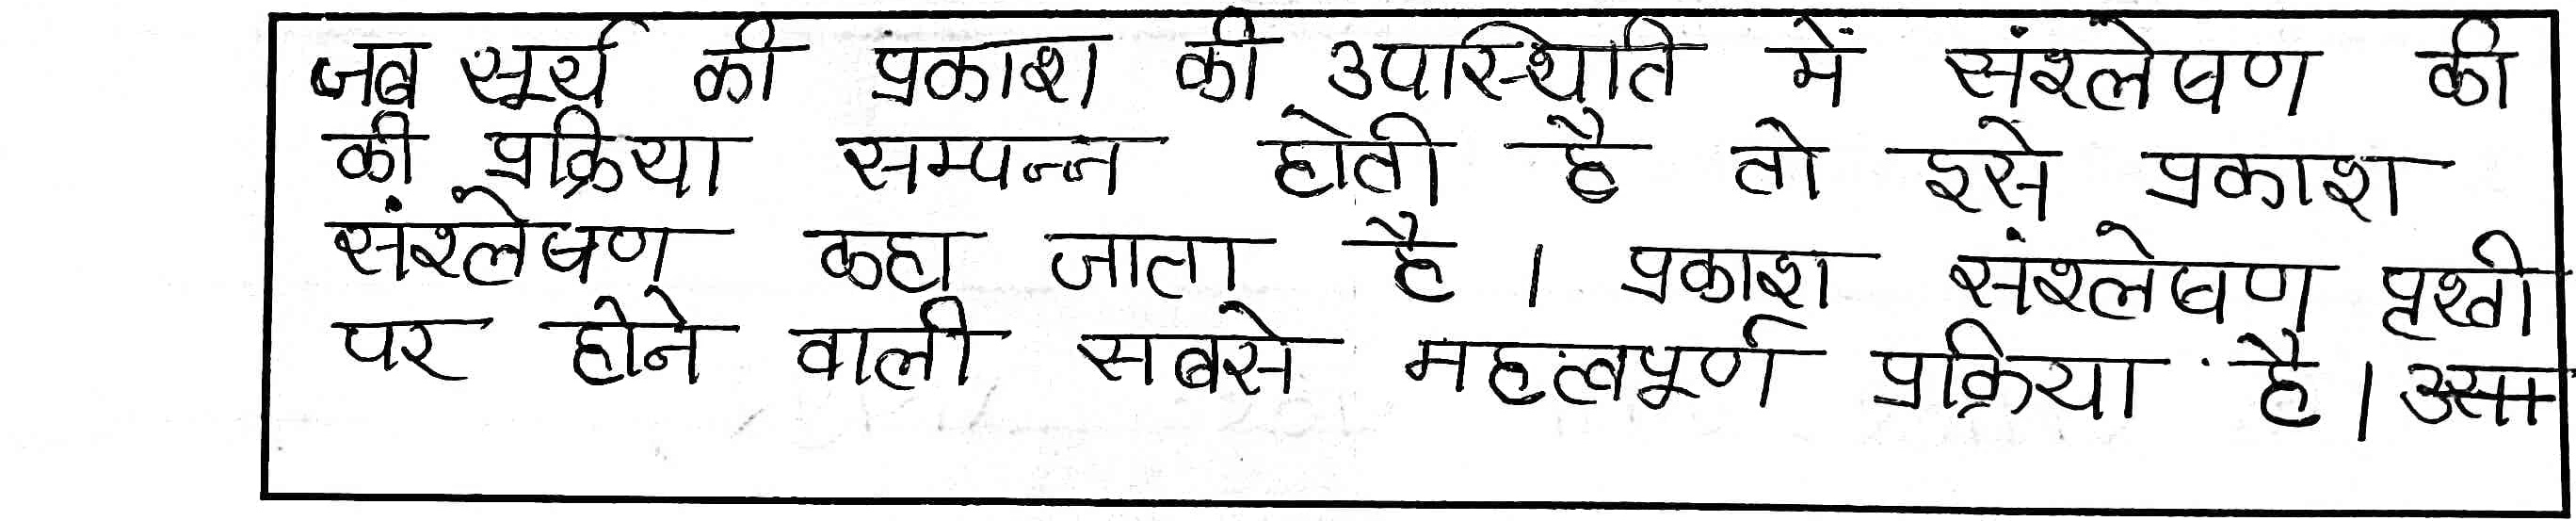 जब सूर्य की प्रकाश की उपस्थिति में संश्लेषण की
की प्रक्रिया सम्पन्न होती है तो इसे प्रकाश
संश्लेषण कहा जाता है । प्रकाश संश्लेषण पृथ्वी
पर होने वाली सबसे महत्वपूर्ण प्रक्रिया है ।